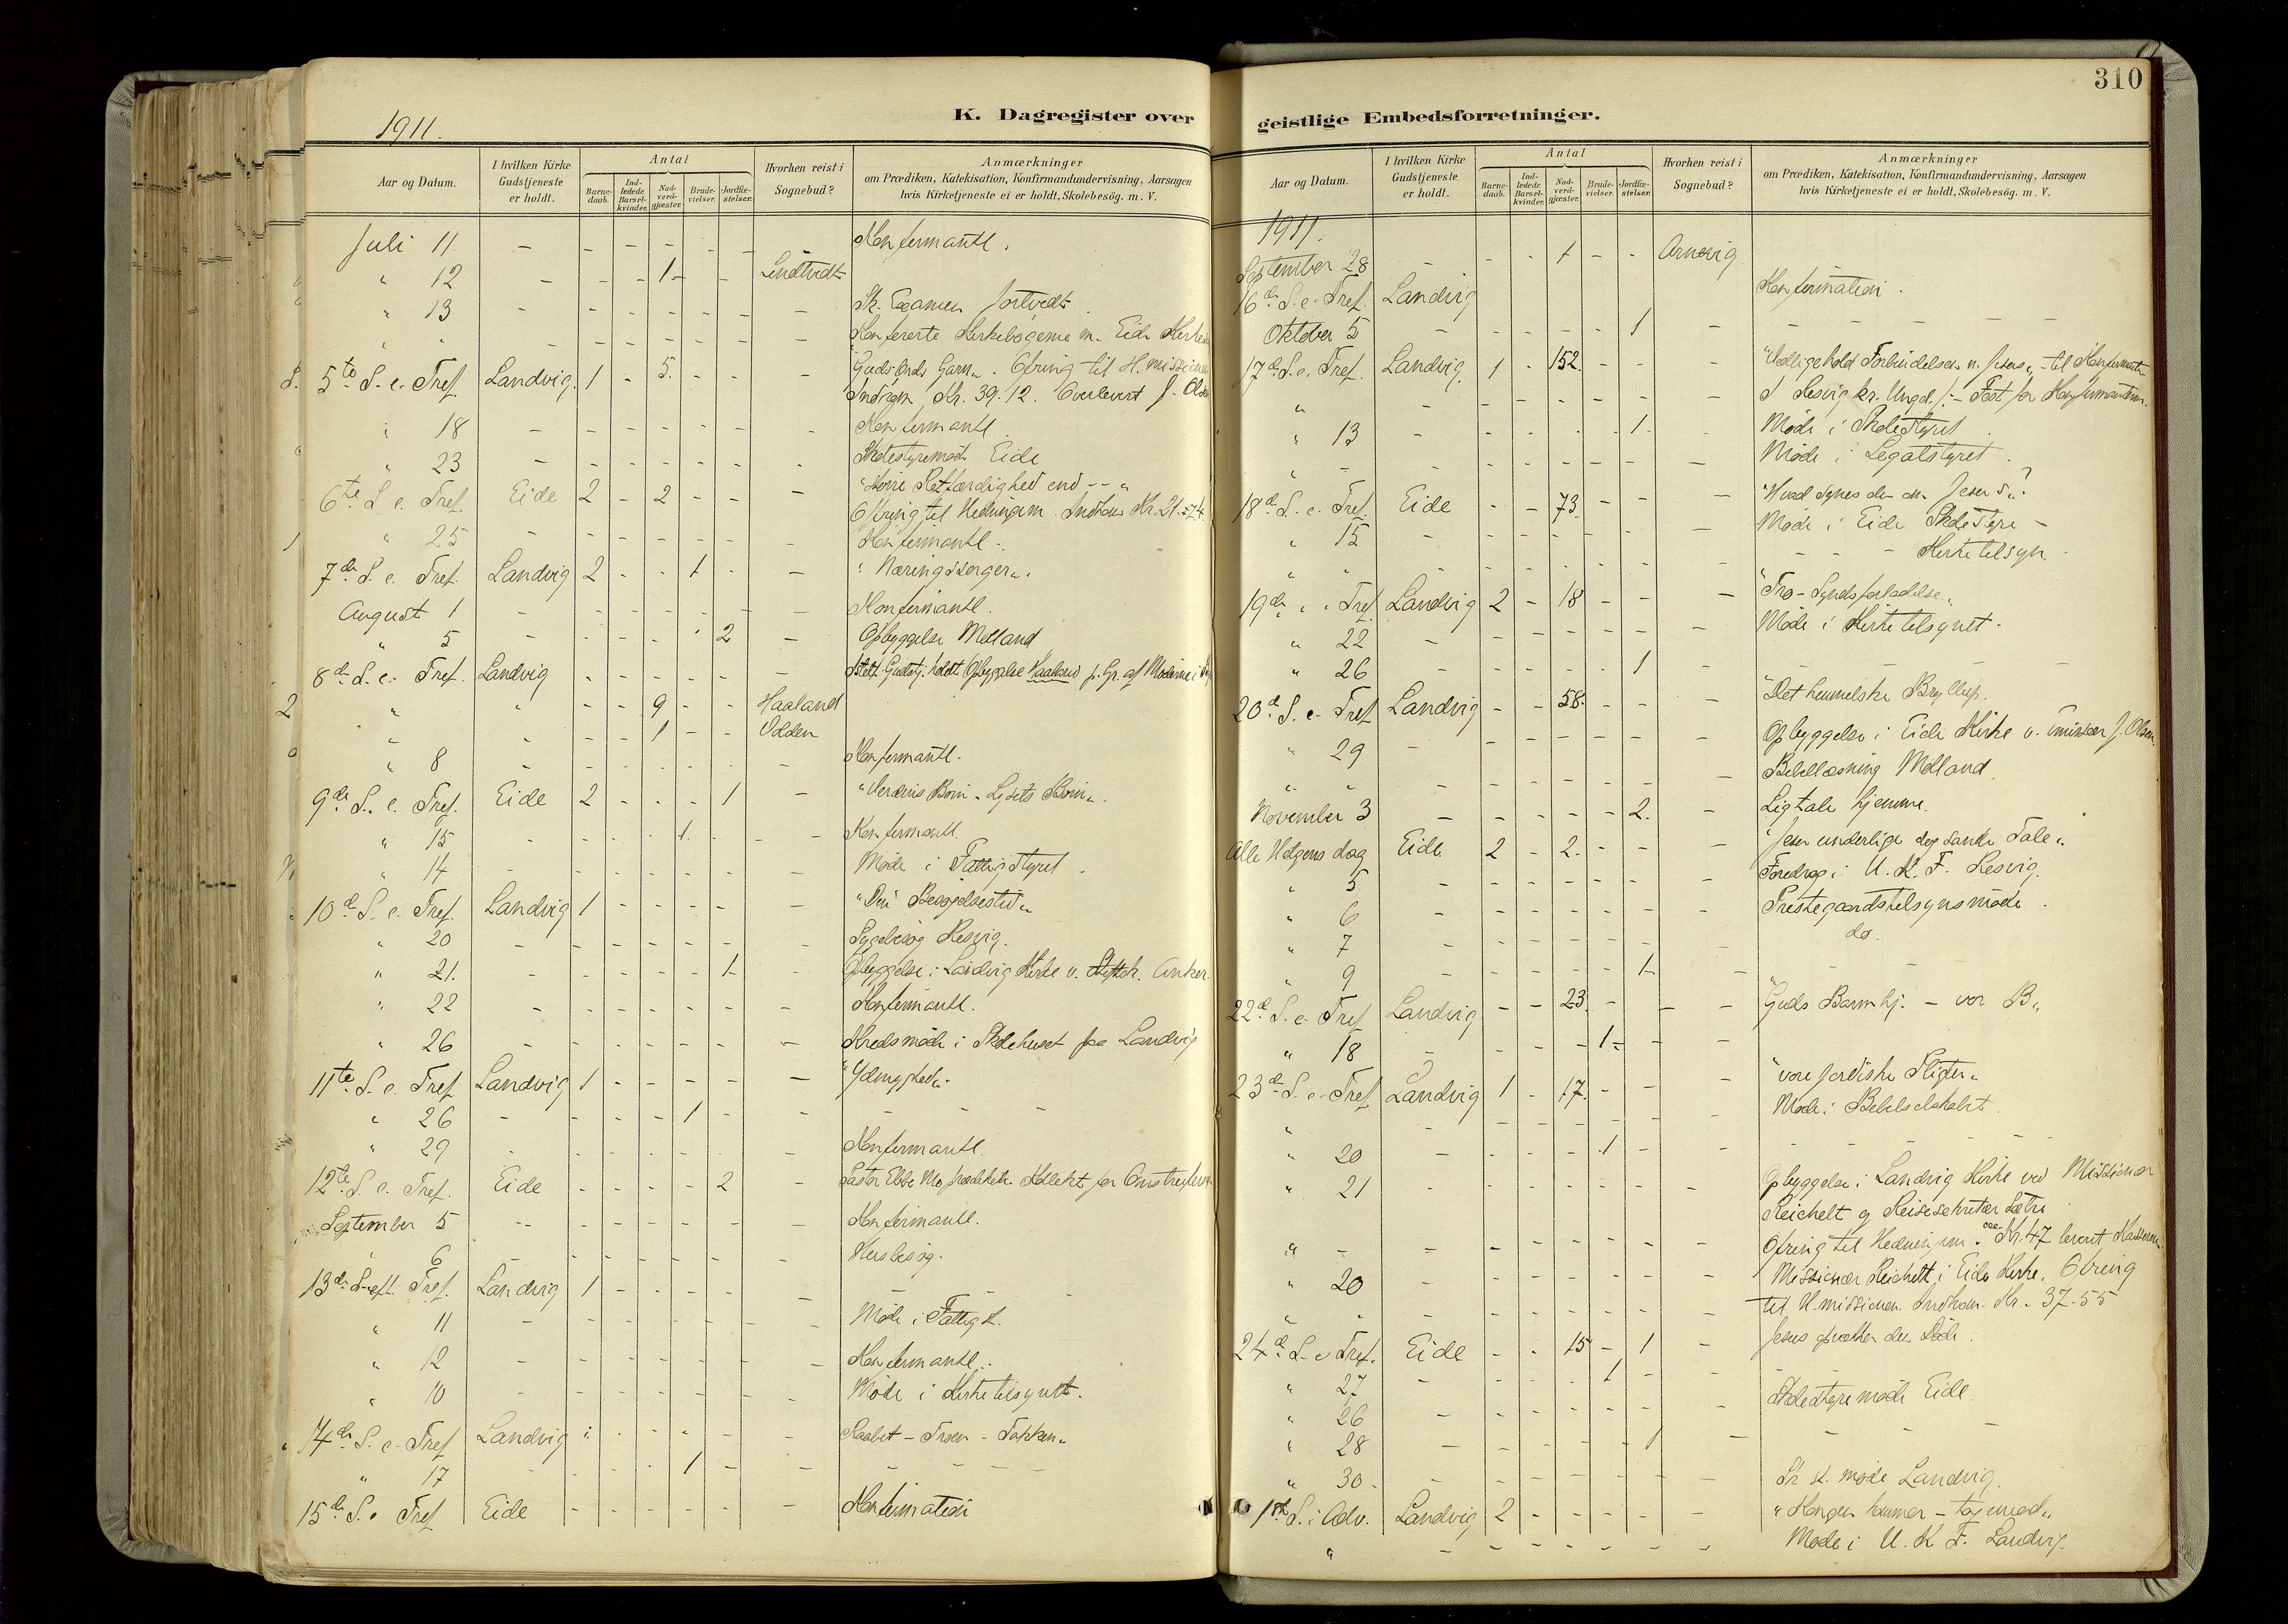 1911.
K. Dagregister over
Aar og Datum. I hvilken Kirke Gudstjeneste er holdt. Antal Barnedaab. Indledede Barselkvinder. Nadverdgjæster. Brudevielser. Jordfæstelser. Hvorhen reist i Sognebud? Anmærkninger om Prædiken, Katekisation, Konfirmandundervisning, Aarsagen hvis Kirketjeneste ei er holdt, Skolebesög. m. V.
Juli 11 - - - - - - Konfirmantl.
" 12 - - - 1 - - Lindtvedt
" 13 - - - - - - - Sk. Examen Fortvedt
" " - - - - - - - Konfererte Kirkebøgerne m. Eide
5te S. e. Tref. Landvig. 1 - 5. - - - Guds Ords Garn. Ofring til H. missionen
Indkom Kr. 39.12. Overlevert J. Olsen
" 18 - - - - - - - Konfirmantl.
" 23 - - - - - - - Skolestyremøde Eide
6te S. e. Tref. Eide 2 - 2 - - - "Større Retfærdighed end -- "
Ofring til Hedningem. Indkom Kr. 21.
" 25 - - - - - - - Konfirmantl.
7de S. e. Tref. Landvig 2 - - 1 - - "Næringssorger".
August 1 - - - - - - - Konfirmantl.
" 5 - - - - - 2 - Opbyggelse Molland
8de S. e. Tref. Landvig - - - - - - Istetf. Gudstj. holdt Opbyggelse
" " - - 9 - - Haaland
" - - - 1 - - Olden
" 8 - - - - - - - Konfirmantl.
9de S. e. Tref. Eide 2 - - - 1 - "Verdens Børn - Lysets Børn".
" 15 - - - - 1. - - Konfirmantl.
" 14 - - - - - - - Møde i Fattigstyret.
10de S. e. Tref. Landvig 1 - - - - - "Din Besøgelsestid"
" 20 - - - - - - - Sygebesøg Resvig.
" 21. - - - - - 1 - Opbyggelse i Landvig Kirke v. Anker
" 22 - - - - - - - Konfirmantl.
" 26 - - - - - - - Kredsmøde i Skolehuset paa Landvig
11te S. e. Tref. Landvig 1 - - - - - "Ydmyghed".
" 26 - - - - 1 - - - - -
" 29 - - - - - - - Konfirmantl.
12te S. e. Tref. Eide - - - - 2 - Pastor Ebbe Mo prædikte. Kollekt for
September 5 - - - - - - - Konfirmantl.
" 6 - - - - - - - Husbesøg.
13de S. eft. Tref. Landvig 1 - - - - -
" 11 - - - - - - - Møde i Fattigst.
" 12 - - - - - - - Konfirmantl.
" 10 - - - - - - - Møde i Kirketilsynet.
14de S. e. Tref Landvig - - - - - Raabet - Troen - Takken"
" 17 - - - - 1 - - - - -
15de S. e Tref Eide - - - - - - Konfirmation
310
geistlige Embedsforretninger.
Aar og Datum. I hvilken Kirke Gudstjeneste er holdt. Antal Barnedaab. Indledede Barselkvinder. Nadverdgjæster. Brudevielser. Jordfæstelser. Hvorhen reist i Sognebud? Anmærkninger om Prædiken, Katekisation, Konfirmandundervisning, Aarsagen hvis Kirketjeneste ei er holdt, Skolebesög. m. V.
1911.
September 28 - - - 1 - - Arnevig
16de S. e. Tref. Landvig Konfirmation.
Oktober 5 - - - - - 1 - - - -
17de S. e. Tref. Landvig. 1 - 152. - - - "Vedligehold Forbindelsen m. Jesus" - til
" - - - - - - - I Resvig kr. Ungd.f. - Fest for Konfirmanterne.
" 13 - - - - - 1. - Møde i Skolestyret.
" - - - - - - - - Møde i Legatstyret.
18de S. e. Tref. Eide - - 73. - - - "Hvad synes du om Jesus"?
" 15 - - - - - - - Møde i Eide Skolestyre -
" " - - - - - - - - - - Kirketilsyn.
19de " " Tref. Landvig 2 - 18 - - - "Tro - Syndsforladelse"
" 22 - - - - - - - Møde i Kirketilsynet.
" 26 - - - - - 1 - - - -
20de S. e. Tref. Landvig - - 58. - - - "Det himmelske Bryllup.
" 29 - - - - - - - Opbyggelse i Eide Kirke v. J. Olsen.
" " - - - - - - - Bibellæsning Molland.
November 3 - - - - - 2. - Ligtale hjemme.
Alle Helgens dag Eide 2 - 2. - - - "Jesu underlige Tale".
" 5 - - - - - - - Foredrag i U. K. F. Resvig.
" 6 - - - - - - - Prestegaardstilsynsmøde.
" 7 - - - - - - - do.
" 9 - - - - - 1 - - - -
22de S. e. Tref Landvig - - 23. - - - "Guds Barmhj. - vor B"
" 18 - - - - 1 - -
23de S. e. Tref Landvig 1 - 17. - - - "vore jordiske Pligter"
" - - - - - - - Møde i Bibelselskabet.
" 20 - - - - 1 - - - - -
" 21 - - - - - - - Opbyggelse i Landvig Kirke ved Missionær
Reichelt og Reisesekretær Sætre
" - - - - - - - - Ofring til Hedningem. Kr. 47 levert Kassereren
" 20 - - - - - - - Missionær Reichelt i Eide Kirke. Ofring
" " - - - - - - - til H. missionen. Indkom. Kr. 37-55
24de S. e. Tref. Eide - - 15 - 1 - Jesus opvækker den Døde.
" 27 - - - - 1 - -
" 26 - - - - - - - Skolestyremøde Eide
" 28 - - - - - 1 - - -
" 30 - - - - - - - Sk. st. møde Landvig.
1ste S. i Adv. Landvig 2 - - - - - "Kongen kommer - tag imod"
" - - - - - - - Møde i U. K. F. Landvig.